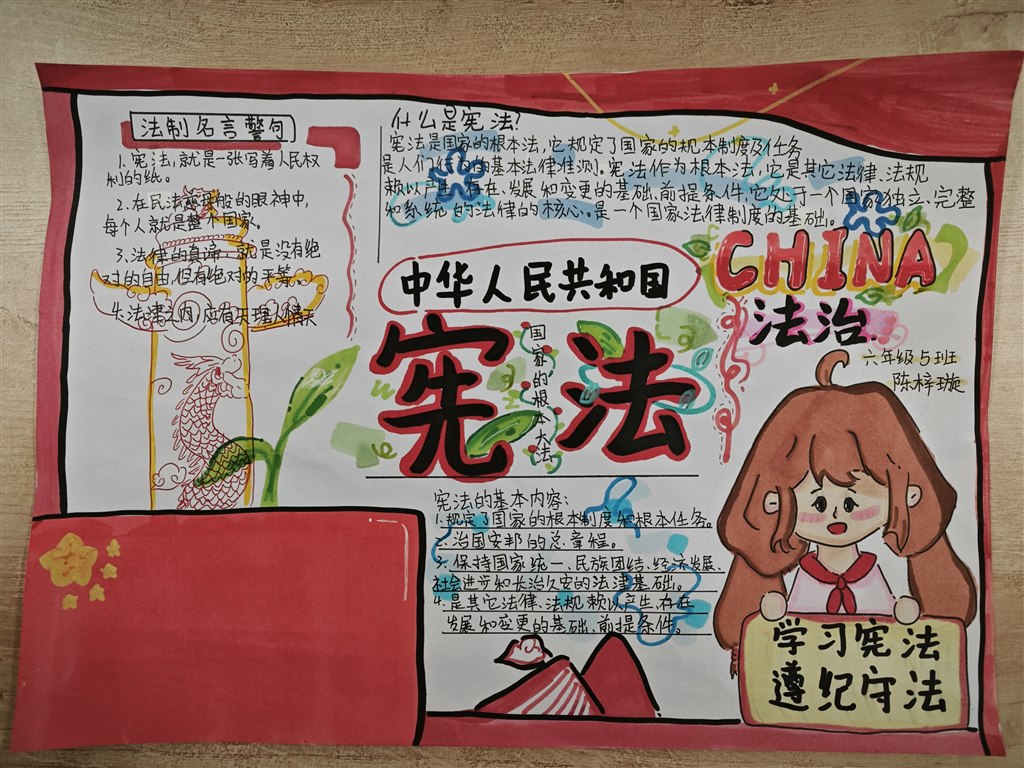 法制名言警句
1. 宪法,就是一张写着人民权
利的纸。
2. 在民法慈母般的眼神中,
每个人就是整个国家。
3. 法律的真谛,就是没有绝
对的自由,但有绝对的平等。
4. 法律之内,应有天理人情在
什么是宪法?
宪法是国家的根本法,它规定了国家的根本制度及任务
是人们行为的基本法律准测。宪法作为根本法,它是其它法律、法规
赖以产生、存在、发展和变更的基础、前提条件,它处于一个国家独立、完整
和系统的法律的核心。是一个国家法律制度的基础。
CHINA
法治.
六年级5班
陈梓璇
中华人民共和国
宪法
国家的根本大法
宪法的基本内容:
1. 规定了国家的根本制度和根本任务。
2. 治国安邦的总章程。
3. 保持国家统一、民族团结、经济发展、
社会进步和长治久安的法津基础。
4. 是其它法律、法规赖以产生、存在
发展和变更的基础、前提条件。
学习宪法
遵纪守法